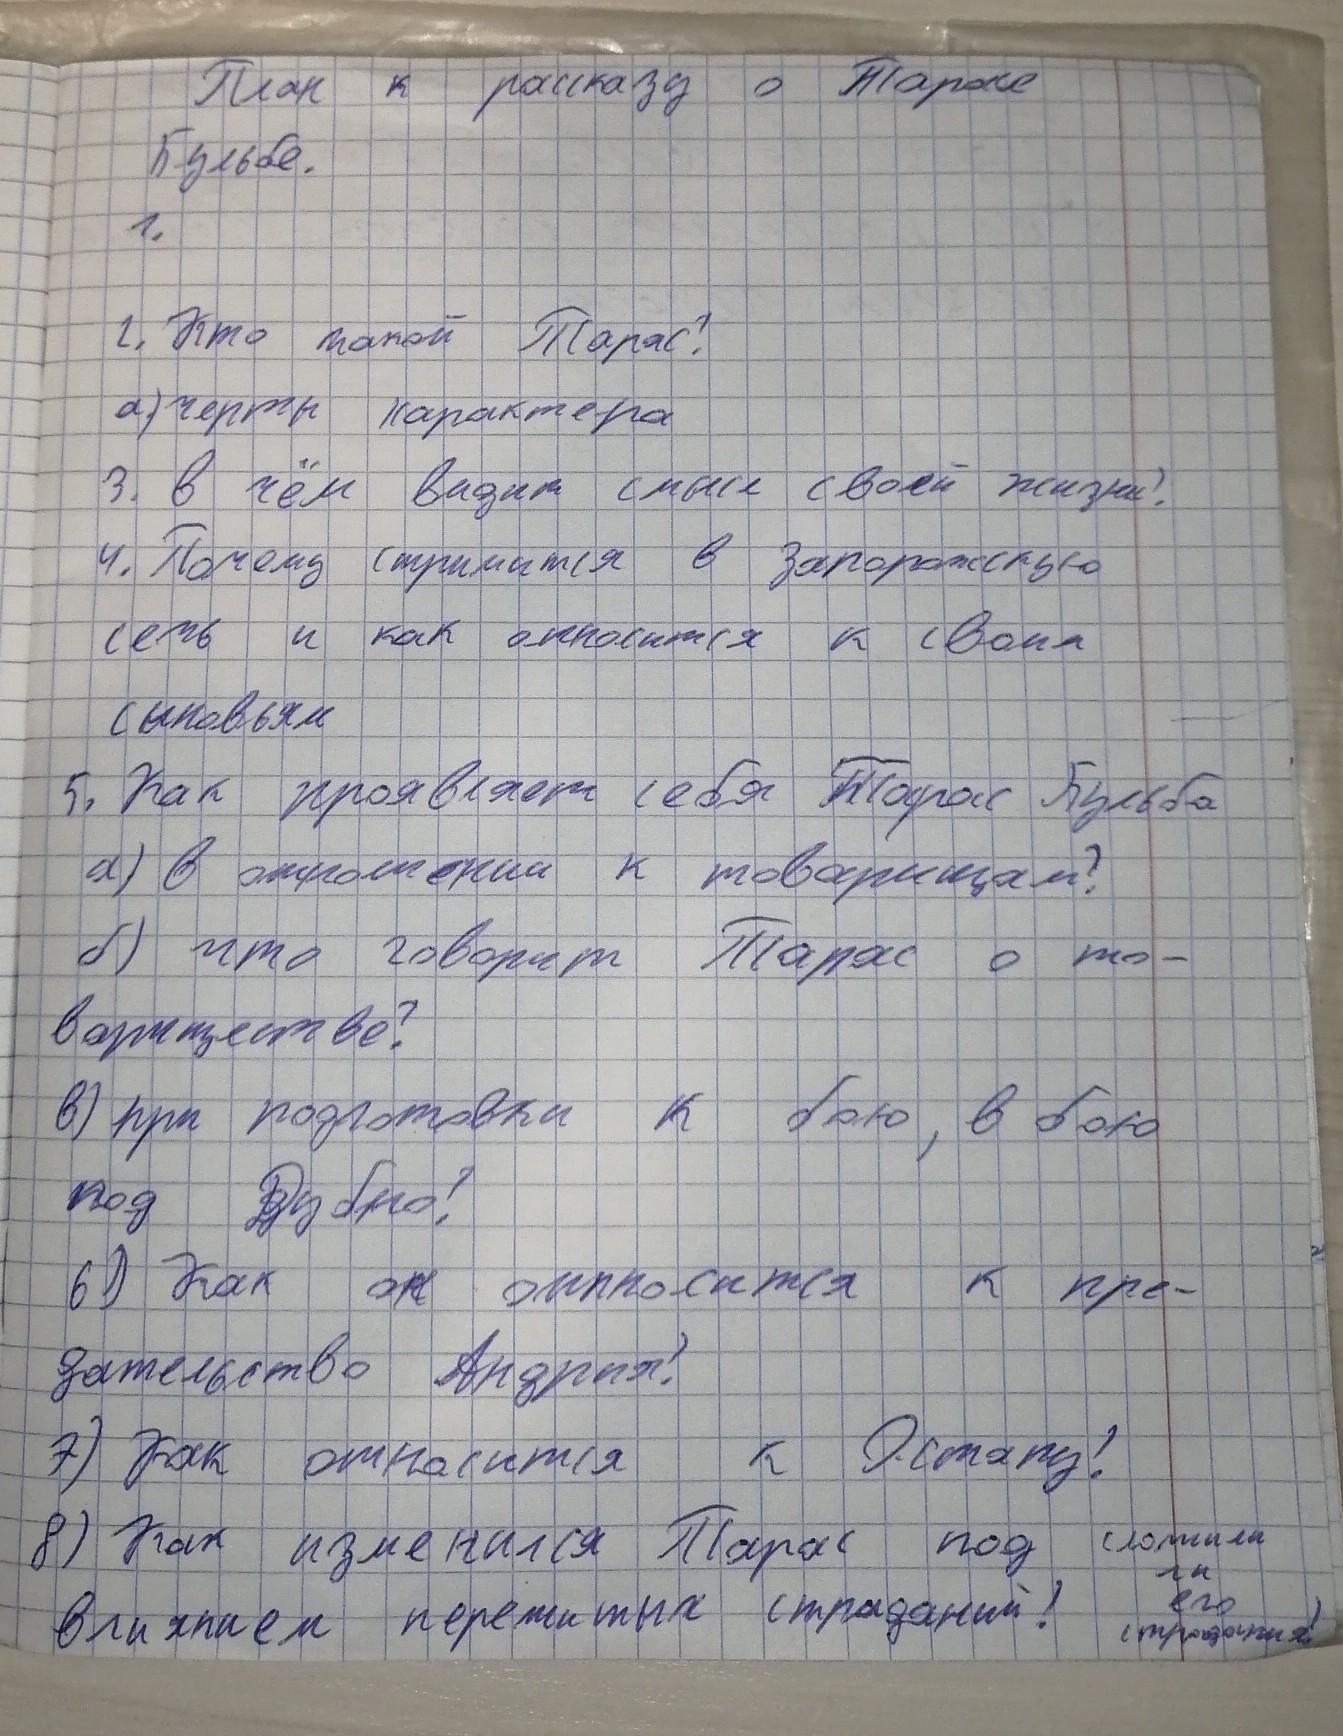 План к рассказу о Тарасе
Бульбе.
1.
2. Кто такой Тарас?
а) черты характера
3. В чём видит смысл своей жизни?
4. Почему стримится в Запорожскую
сечь и как относится к своим
сыновьям
5. Как проявляет себя Тарас Бульба
а) в отношении к товарищам?
б) что говорит Тарас о то-
вариществе?
в) при подготовки к бою, в бою
под Дубно?
6) Как он относится к пре-
дательство Андрия?
7) Как относится к Остапу?
8) Как изменился Тарас под
влиянием пережитых страданий?
сломили
ли
его
страдания?